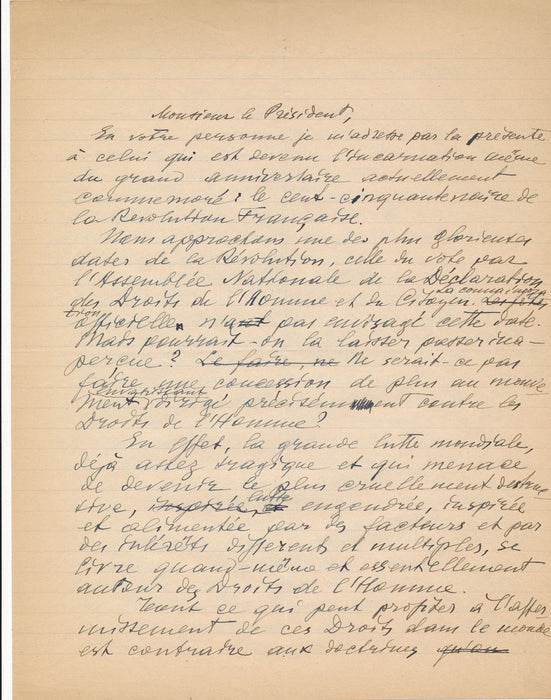 Monsieur le Président,
En votre personne je m'adresse par la présente
à celui qui est devenu l'incarnation même
du grand anniversaire actuellement
commemoré : le cent-cinquantenaire de
la Révolution Française.
Nous approchons une des plus glorieuses
dates de la Révolution, celle du vote par
l'Assemblée Nationale de la Déclaration
des Droits de l'Homme et du Citoyen.
officielle n'a pas envisagé cette date.
Mais pourrait-on la laisser passer ina-
perçue? Le faire, ne Ne serait-ce pas
faire une concession de plus au mouve
envahissant
ment dirigé précisement contre les
Droits de l'Homme?
En effet, la grande lutte mondiale,
déjà assez tragique et qui menace
de devenir le plus cruellement destruc
lutte
sive, inspirée, engendrée, inspirée
et alimentée par des facteurs et par
des intérêts différents et multiples, se
livre quand-même et essentiellement
autour des Droits de l'Homme.
Tout ce qui peut profiter à l'affer
missement de ces Droits dans le monde
est contraire aux doctrines qu'on